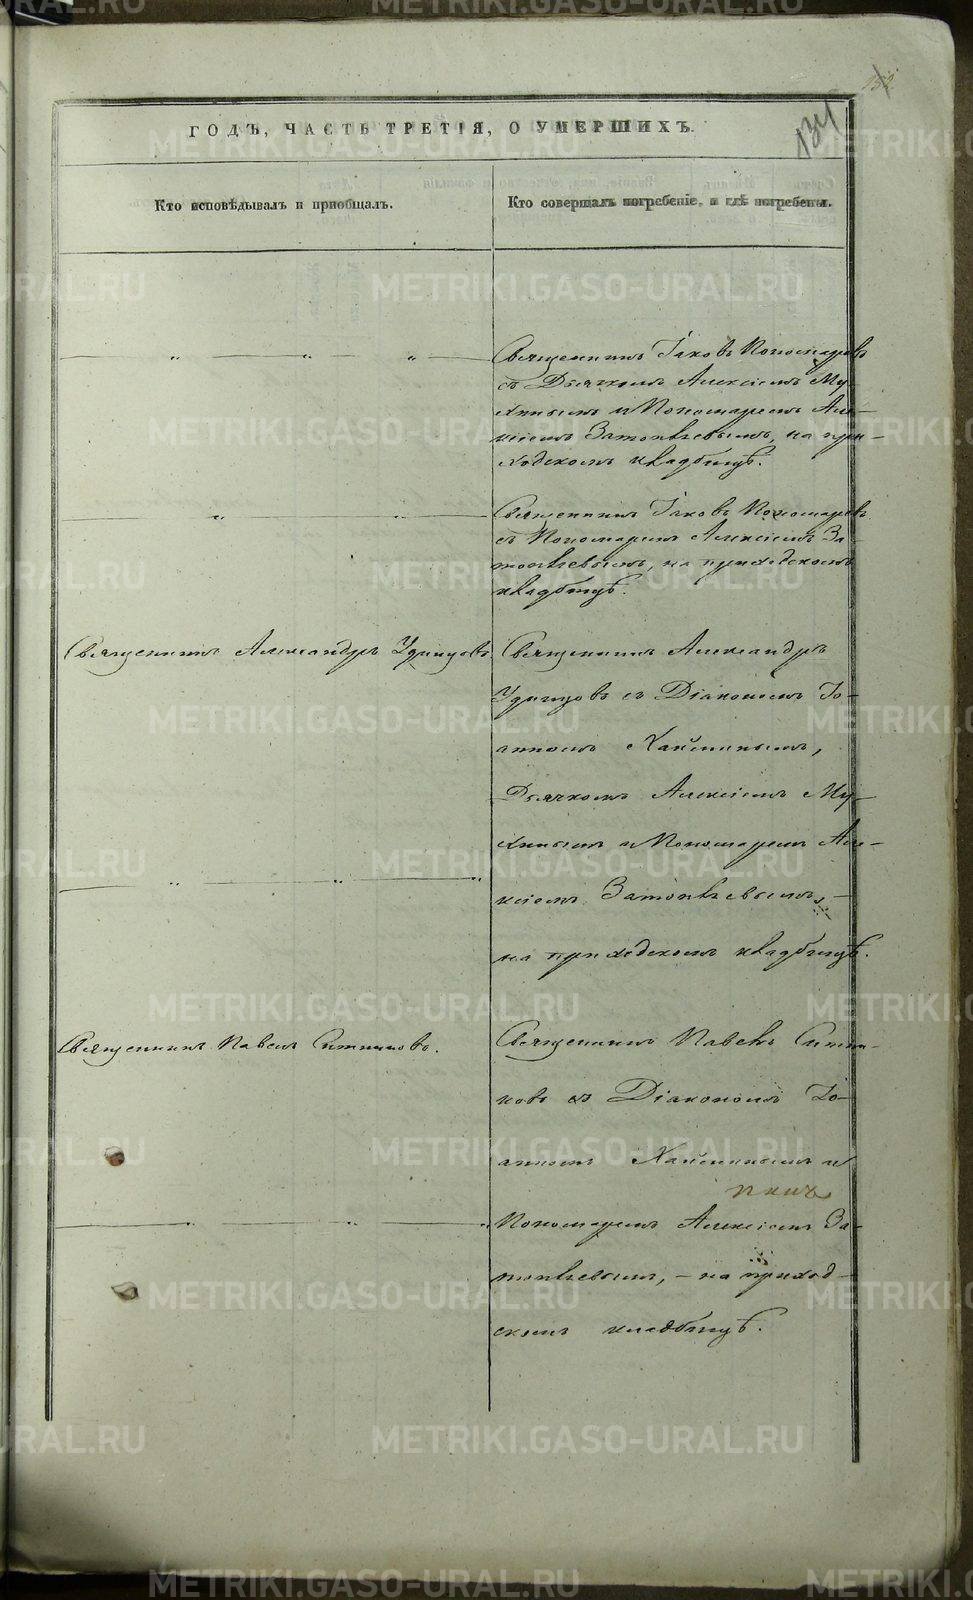 152
134
ГОДЪ, ЧАСТЬ ТРЕТІЯ, О УМЕРШИХЪ.
Кто исповѣдывалъ и пріобщалъ.
Кто совершалъ погребеніе, и гдѣ погребены.
Священникъ Іаковъ Пономаревъ
съ Дьячкомъ Алексіемъ Му-
хинымъ и Пономаремъ Але-
ксіемъ Затопляевымъ, на при-
ходскомъ кладбищѣ.
Священникъ Іаковъ Пономаревъ
съ Пономаремъ Алексіемъ За-
топляевымъ, на приходскомъ
кладбищѣ.
Священникъ Александръ Удинцовъ.
Священникъ Александръ
Удинцовъ съ Діакономъ Іо-
анномъ
Дьячкомъ Алексіемъ Му-
хинымъ и Пономаремъ Але-
ксіемъ Затопляевымъ, —
на приходскомъ кладбищѣ.
Священникъ Павелъ Ситниковъ.
Священникъ Павелъ Ситни-
ковъ съ Діакономъ Іо-
анномъ и
Пономаремъ Алексіемъ За-
топляевымъ, — на приход-
скомъ кладбищѣ.
METRIKI.GASO-URAL.RU